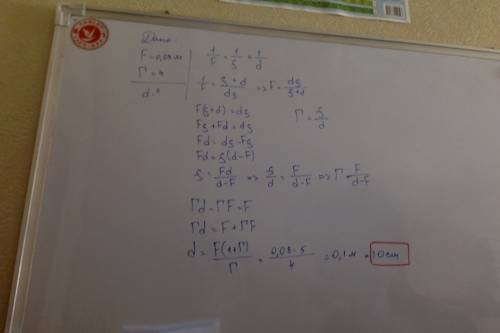 Дано:
F = 0,08м
Г = 4
d - ?
1/F = 1/f + 1/d
1/F = (f + d)/df => F = df/(f+d)
F(f+d) = df
Ff + Fd = df
Fd = df - Ff
Fd = f(d-F)
f = Fd/(d-F) => f/d = F/(d-F) => Г = F/(d-F)
Г = f/d
Гd - ГF = F
Гd = F + ГF
d = F(1+Г)/Г = 0,08·5/4 = 0,1м = 10см